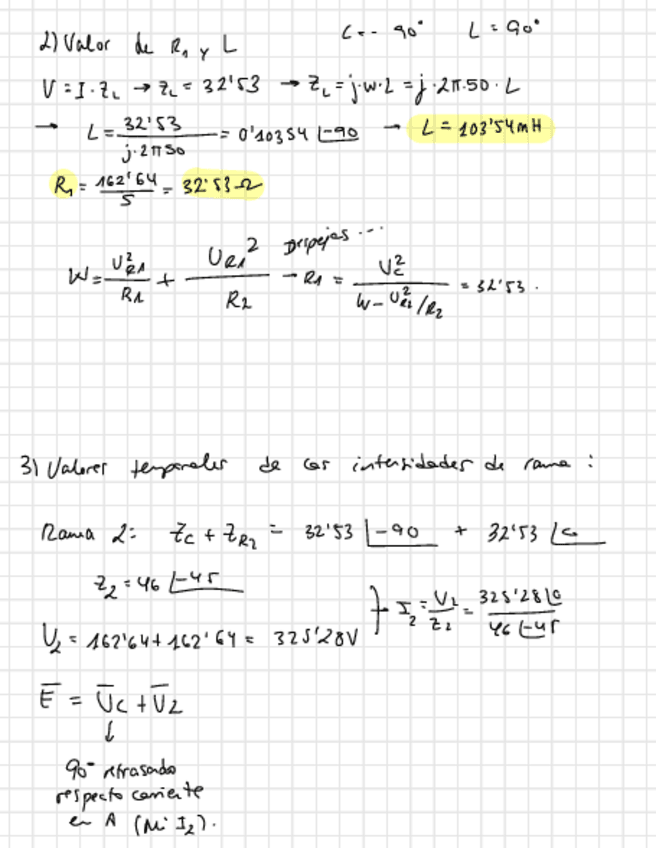 C = - 90° L = 90°
2) Valor de R₁ y L
V = I · Z_L → Z_L = 32'53 → Z_L = j·w·L = j·2π·50·L
→ L = 32'53 / j·2π50 = 0'10354 ∟-90 → L = 103'54mH
R₁ = 162'64 / 5 = 32'53 Ω
W = U²_R1 / R1 + U_R1² / R2 Despejas ... → R1 = U_C² / (W - U²_R2 / R2) = 32'53.
3) Valores temporales de las intensidades de rama :
Rama 2: Z_C + Z_R2 = 32'53 ∟-90 + 32'53 ∟0
Z₂ = 46 ∟-45
U₂ = 162'64 + 162'64 = 325'28V } I₂ = V₂ / Z₂ = 325'28∟0 / 46∟-45
E̅ = U̅c + U̅₂
↓
90° retrasado
respecto corriente
en A (Mi I₂).